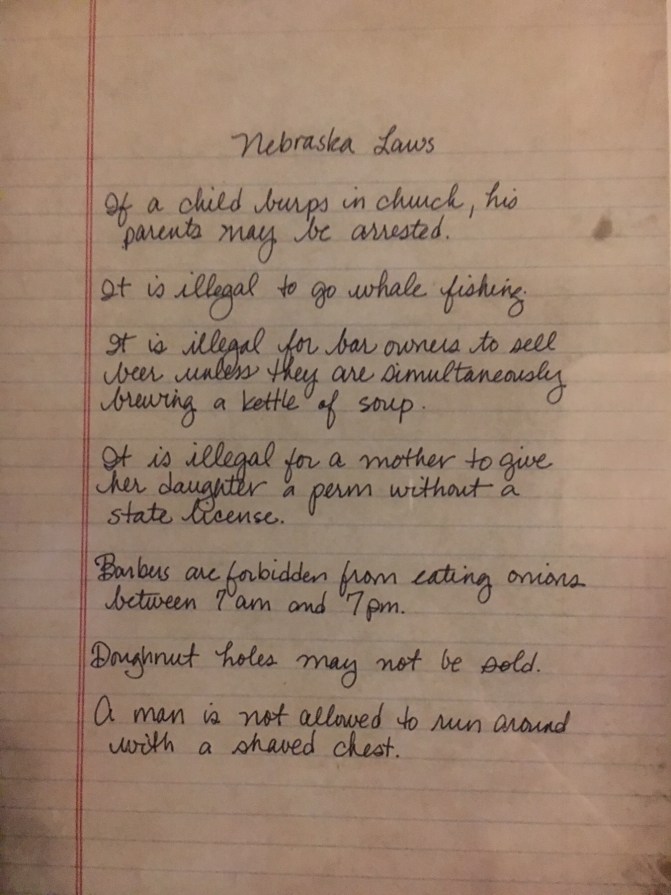 Nebraska Laws
If a child burps in church, his
parents may be arrested.
It is illegal to go whale fishing.
It is illegal for bar owners to sell
beer unless they are simultaneously
brewing a kettle of soup.
It is illegal for a mother to give
her daughter a perm without a
state license.
Barbers are forbidden from eating onions
between 7am and 7pm.
Doughnut holes may not be sold.
A man is not allowed to run around
with a shaved chest.